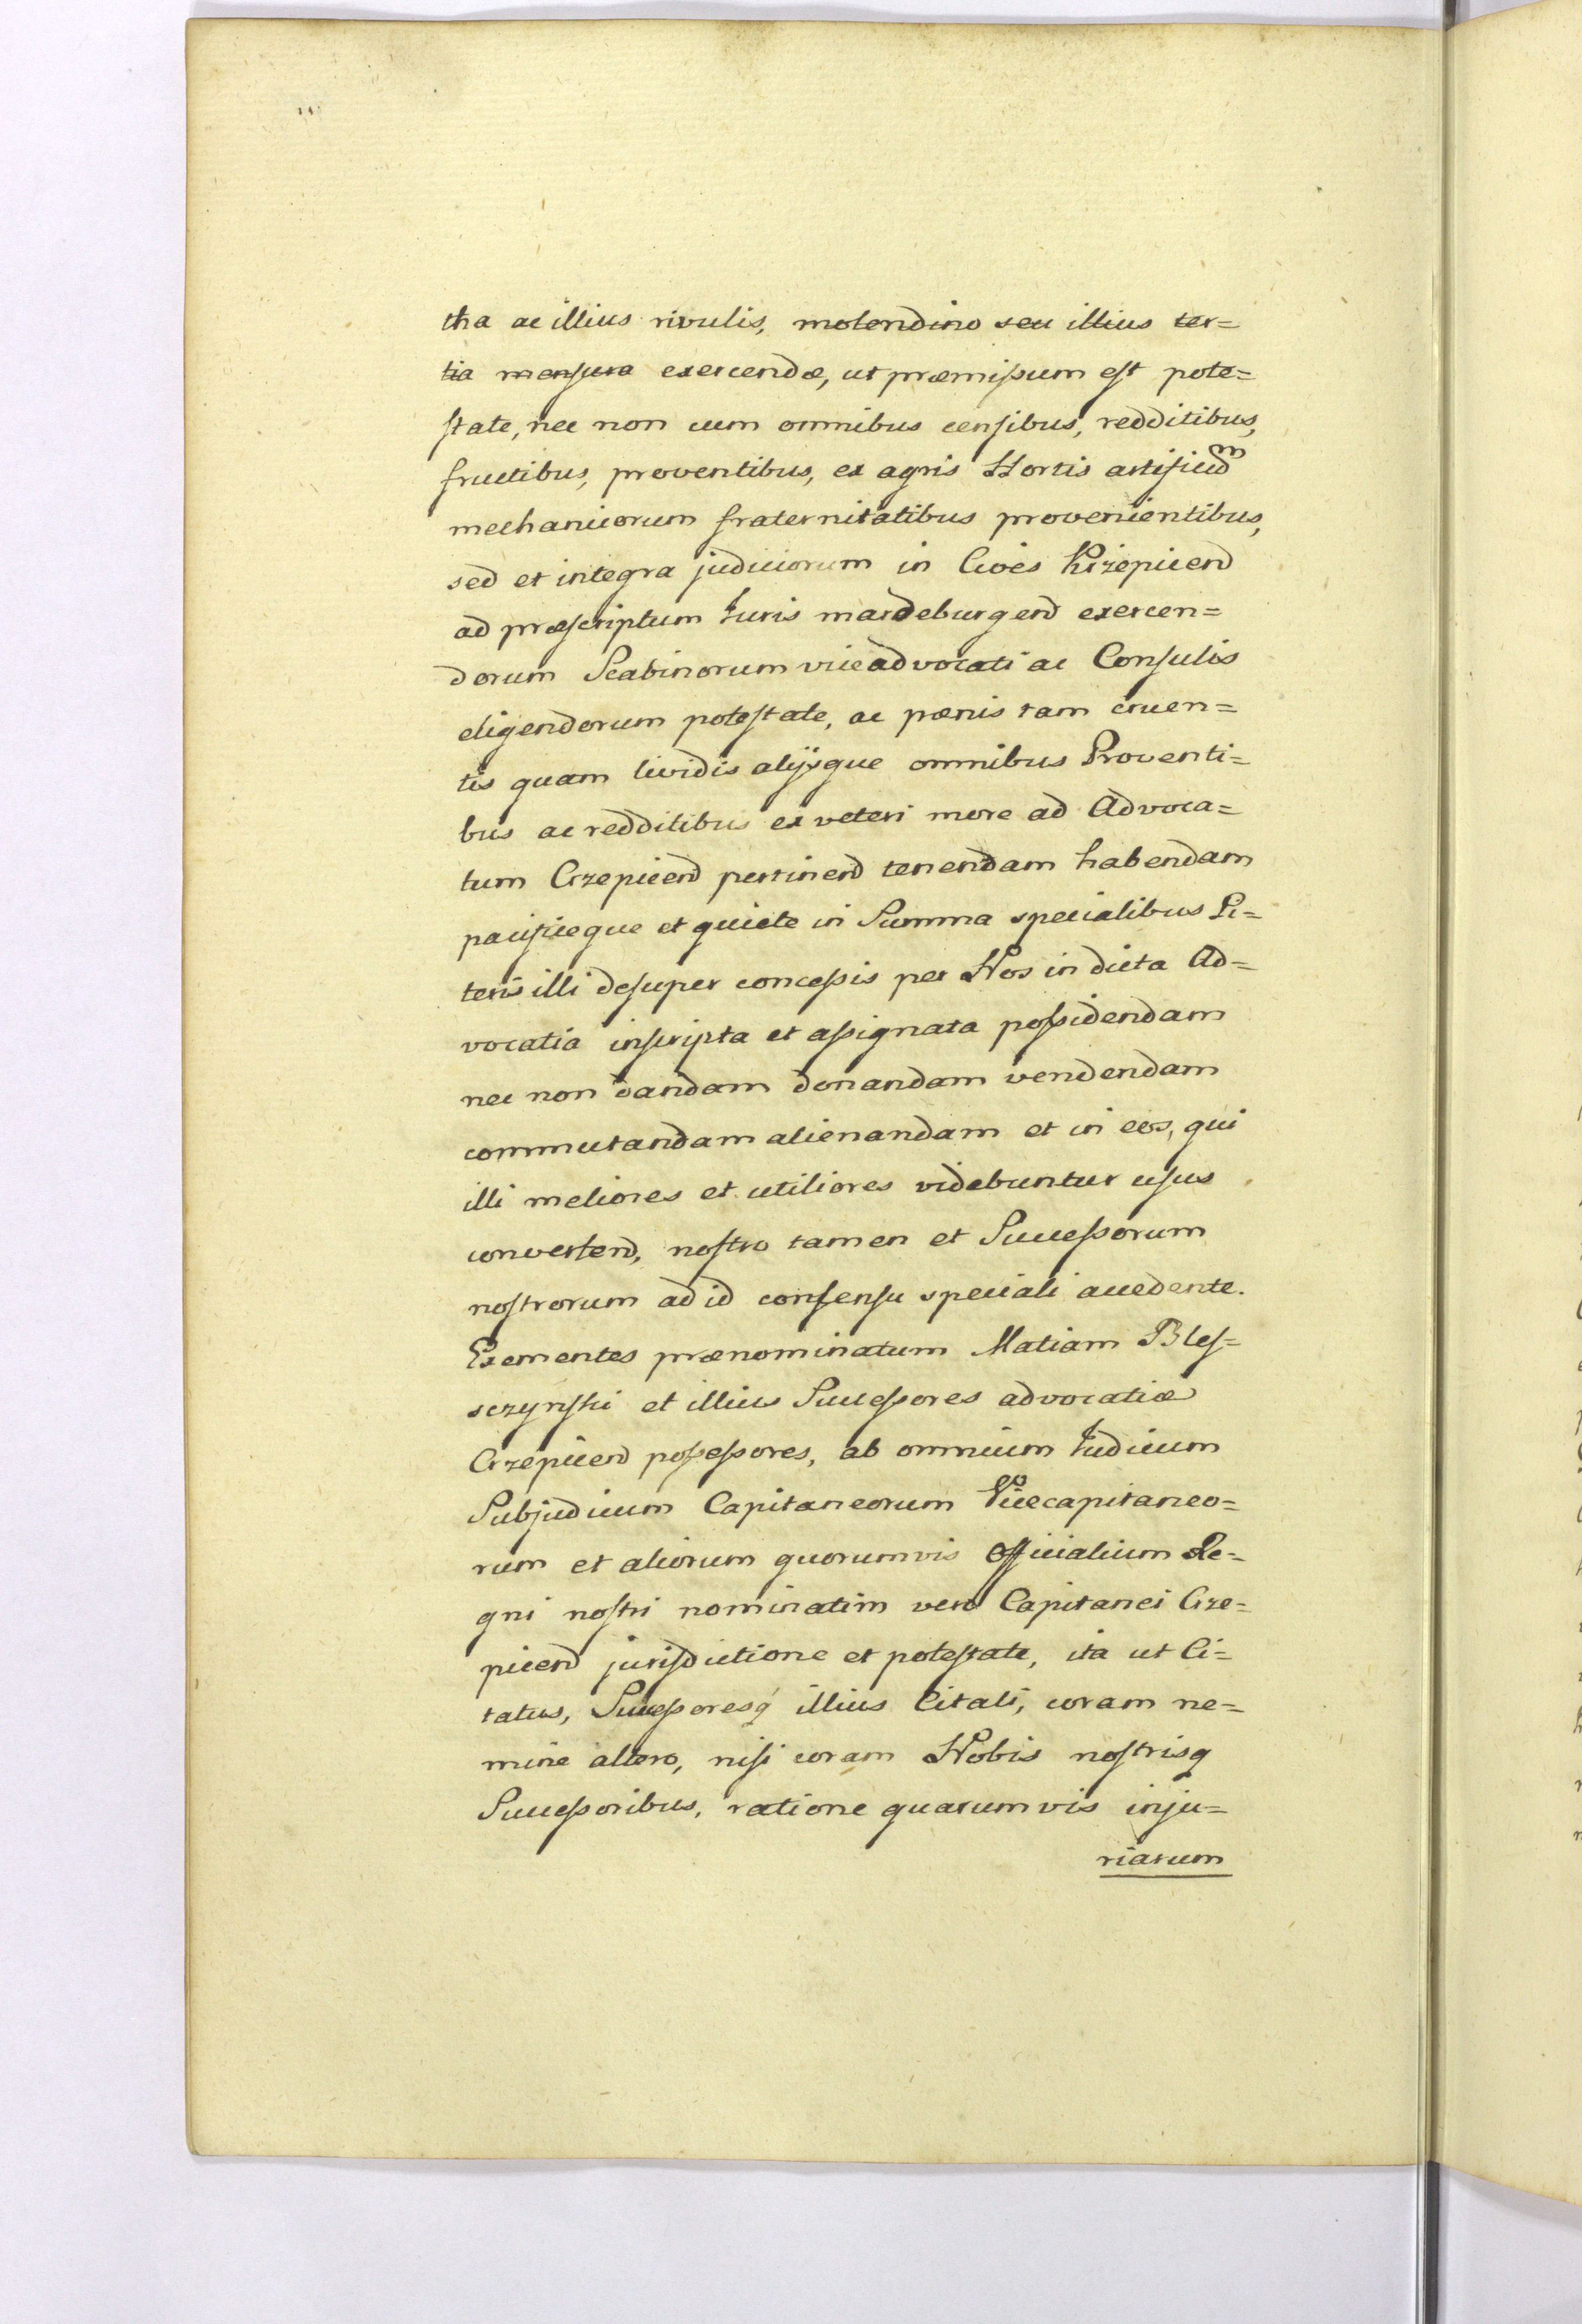 tha ac illius rivulis, molendino seu illius ter=
tia mensura exercendæ, ut præmissum est pote=
state, nec non cum omnibus censibus, redditibus,
fructibus, proventibus, ex agris Hortis artificum
mechanicorum fraternitatibus provenientibus,
sed et integra judiciorum in Cives Krzepicen
ad præscriptum Juris mardeburgen exercen=
dorum Scabinorum viceadvocati ac Consulis
eligendorum potestate, ac pœnis tam cruen=
tis quam lividis alijsque omnibus Proventi=
bus ac redditibus ex veteri more ad Advoca=
tum Crzepicen pertinen tenendam habendam
pacificeque et quiete in Summa specialibus Li=
teris illi desuper concessis per Nos in dicta Ad=
vocatia inscripta et assignata possidendam
nec non dandam donandam vendendam
commutandam alienandam et in eos, qui
illi meliores et utiliores videbuntur usus
converten, nostro tamen et Successorum
nostrorum ad id consensu speciali accedente.
Exementes prænominatum Matiam Bles=
sczynski et illius Successores advocatiæ
Crzepicen possessores, ab omnium Judicum
Subjudicum Capitaneorum Vicecapitaneo=
rum et aliorum quorumvis Officialium Re=
gni nostri nominatim vero Capitanei Crze=
picen jurisdictione et potestate, ita ut Ci=
tatus, Successoresq illius Citati, coram ne=
mine altero, nisi coram Nobis nostrisq
Successoribus, ratione quarumvis inju=
riarum